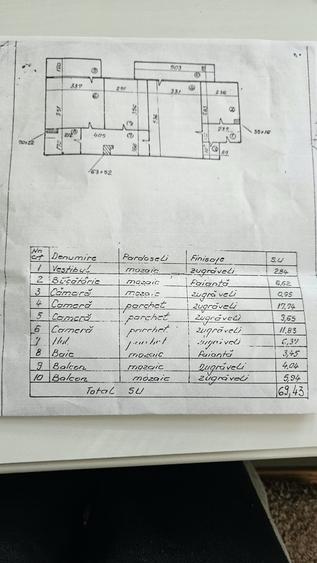 503
337
291
331
236
297
405
239
30×22
35×16
63×52
Nr. crt Denumire Pardoseli Finisaje S.U
1 Vestibul mozaic zugrăveli 2,84
2 Bucătărie mozaic Faianță 6,62
3 Cămară mozaic zugrăveli 0,95
4 Cameră parchet zugrăveli 17,74
5 Cameră parchet zugrăveli 9,65
6 Cameră parchet zugrăveli 11,83
7 Hol parchet zugrăveli 6,37
8 Baie mozaic Faianță 3,45
9 Balcon mozaic zugrăveli 4,04
10 Balcon mozaic zugrăveli 5,94
Total SU 69,43